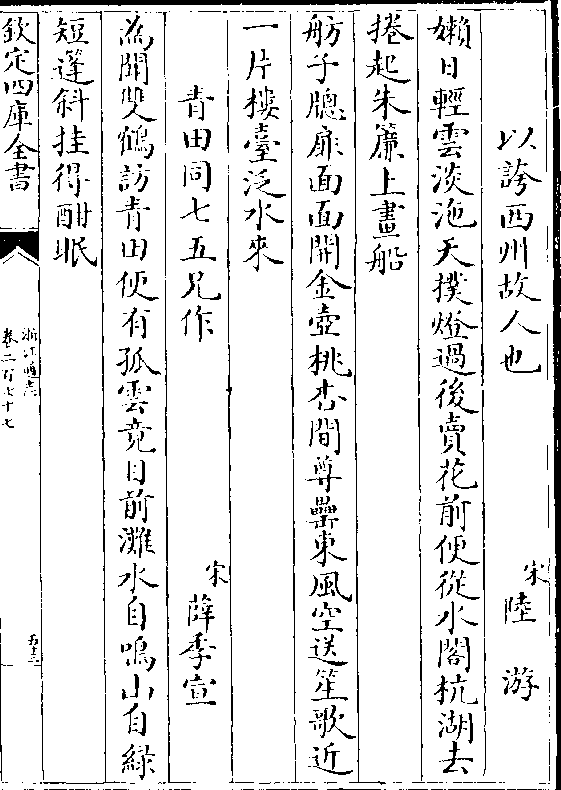 以誇西州故人也　宋陸游
嬾日輕雲淡沲天撲燈過後賣花前便從水閣杭湖去
捲起朱簾上畫船
舫子牕扉面面開金壺桃杏間尊罍東風空送笙歌近
一片樓臺泛水來
青田同七五兄作　宋薛季宣
為聞雙鶴訪青田便有孤雲竟日前灘水自鳴山自綠
短蓬斜挂得酣眠
欽定四庫全書
浙江通志
卷二百七十七